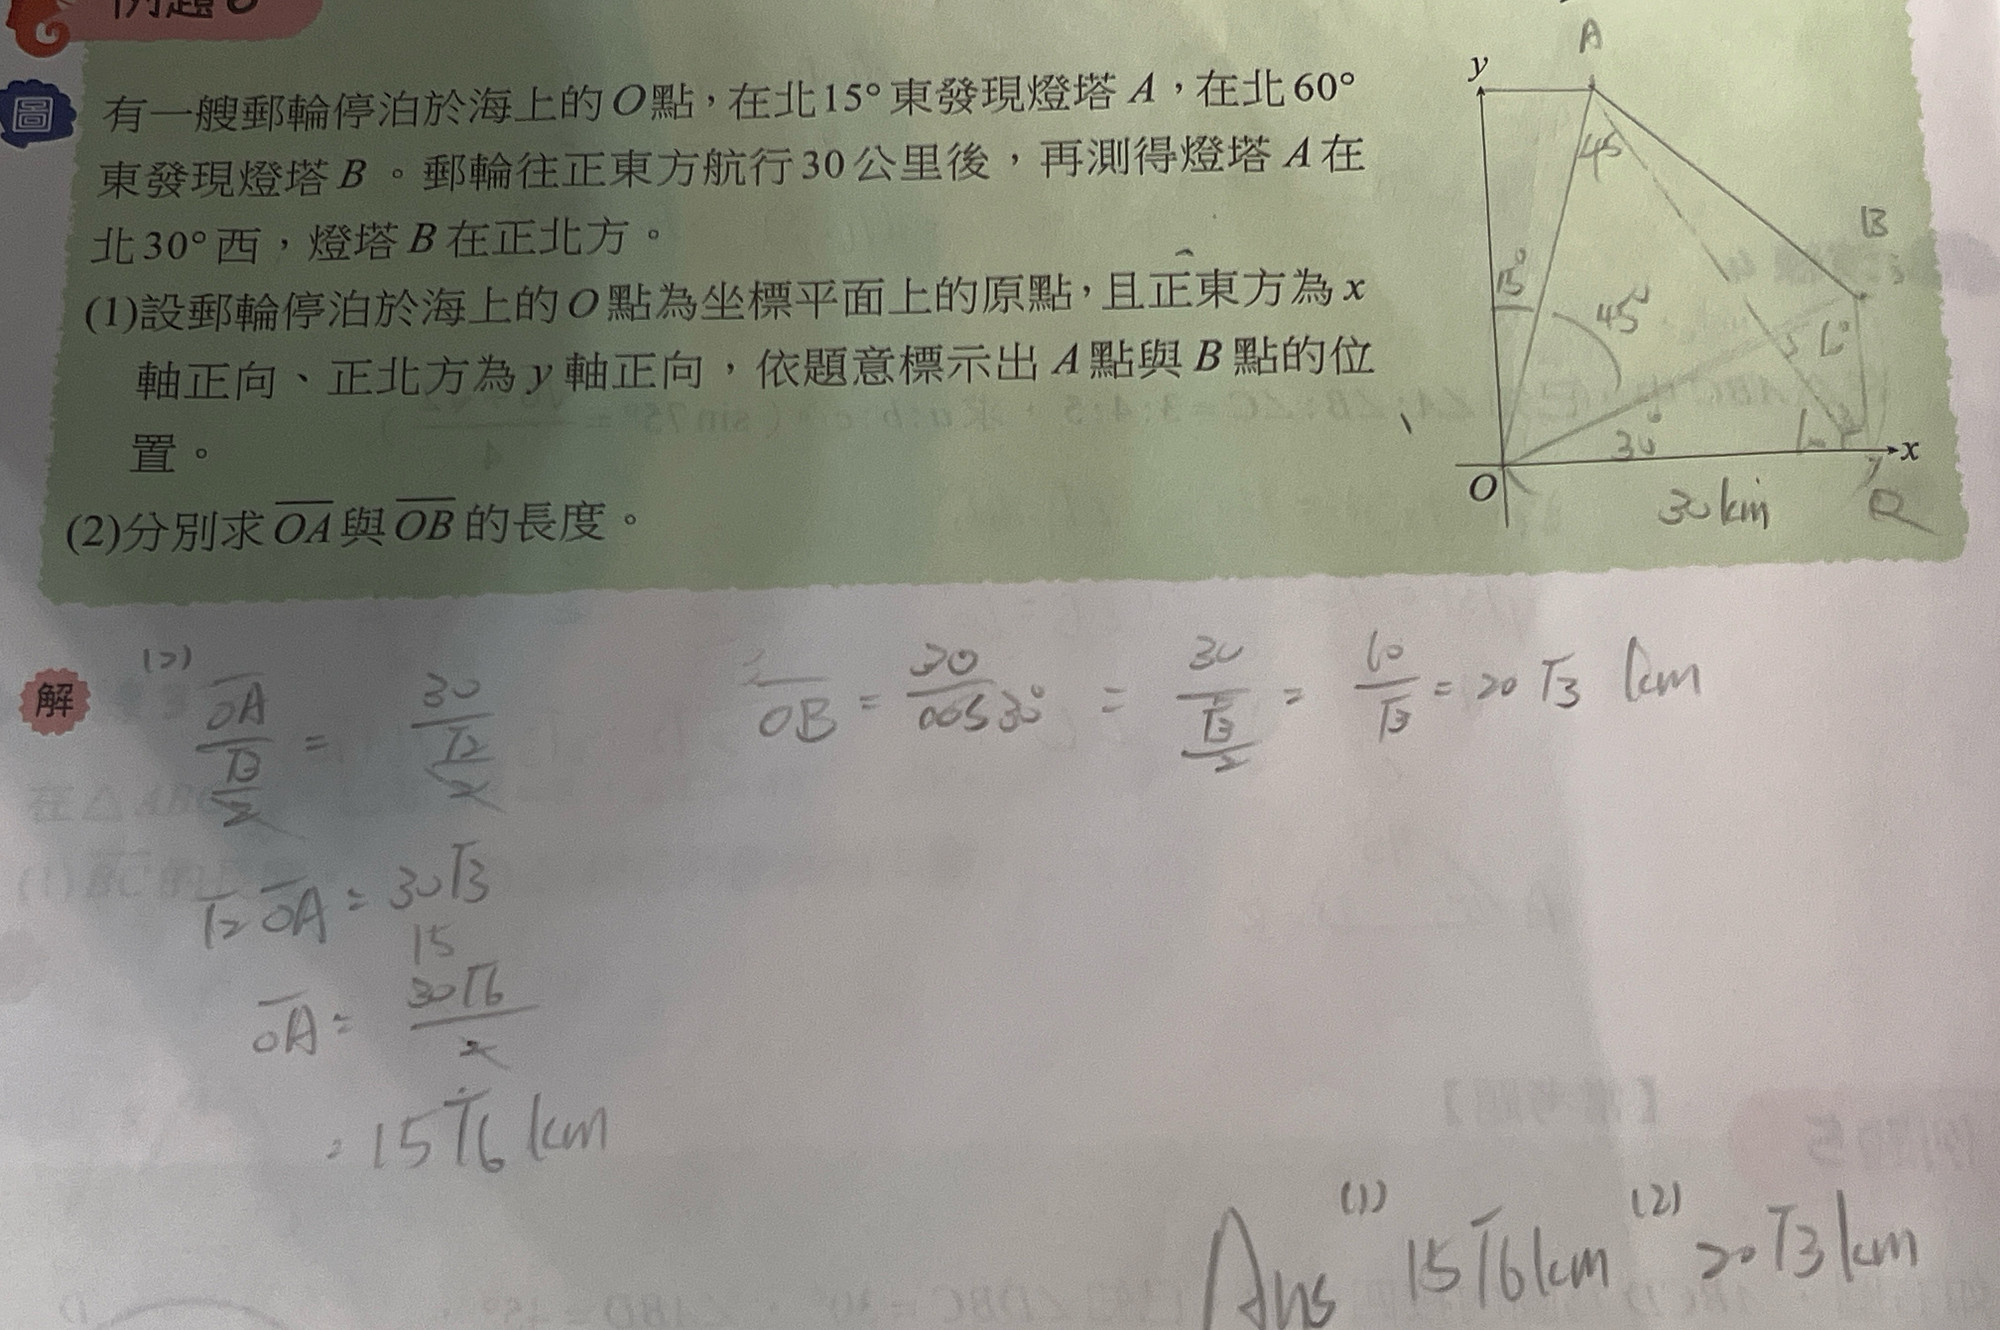 例題6
圖
有一艘郵輪停泊於海上的O點，在北15°東發現燈塔A，在北60°
東發現燈塔B。郵輪往正東方航行30公里後，再測得燈塔A在
北30°西，燈塔B在正北方。
(1)設郵輪停泊於海上的O點為坐標平面上的原點，且正東方為x
軸正向、正北方為y軸正向，依題意標示出A點與B點的位
置。
(2)分別求OA與OB的長度。
A
y
45
B
15°
45°
60°
30°
60
x
O
30km
Q
解
(2)
OA/(√3/2) = 30/(√2/2)
√2 OA = 30√3
15
OA = 30√6/2
= 15√6 km
OB = 30/cos30° = 30/(√3/2) = 60/√3 = 20√3 km
Ans (1) 15√6km (2) 20√3km